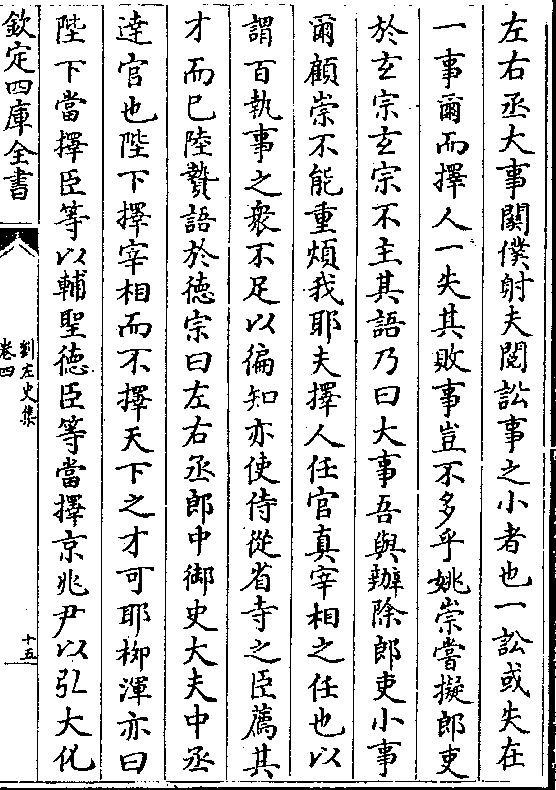 左右丞大事闗僕射夫閱訟事之小者也一訟或失在
一事爾而擇人一失其敗事豈不多乎姚崇嘗擬郎吏
於玄宗玄宗不主其語乃曰大事吾與辦除郎吏小事
爾顧崇不能重煩我耶夫擇人任官真宰相之任也以
謂百執事之衆不足以徧知亦使侍從省寺之臣薦其
才而已陸贄語於德宗曰左右丞郎中御史大夫中丞
達官也陛下擇宰相而不擇天下之才可耶栁渾亦曰
陛下當擇臣等以輔聖德臣等當擇京兆尹以弘大化
欽定四庫全書
劉左史集
卷四
十五